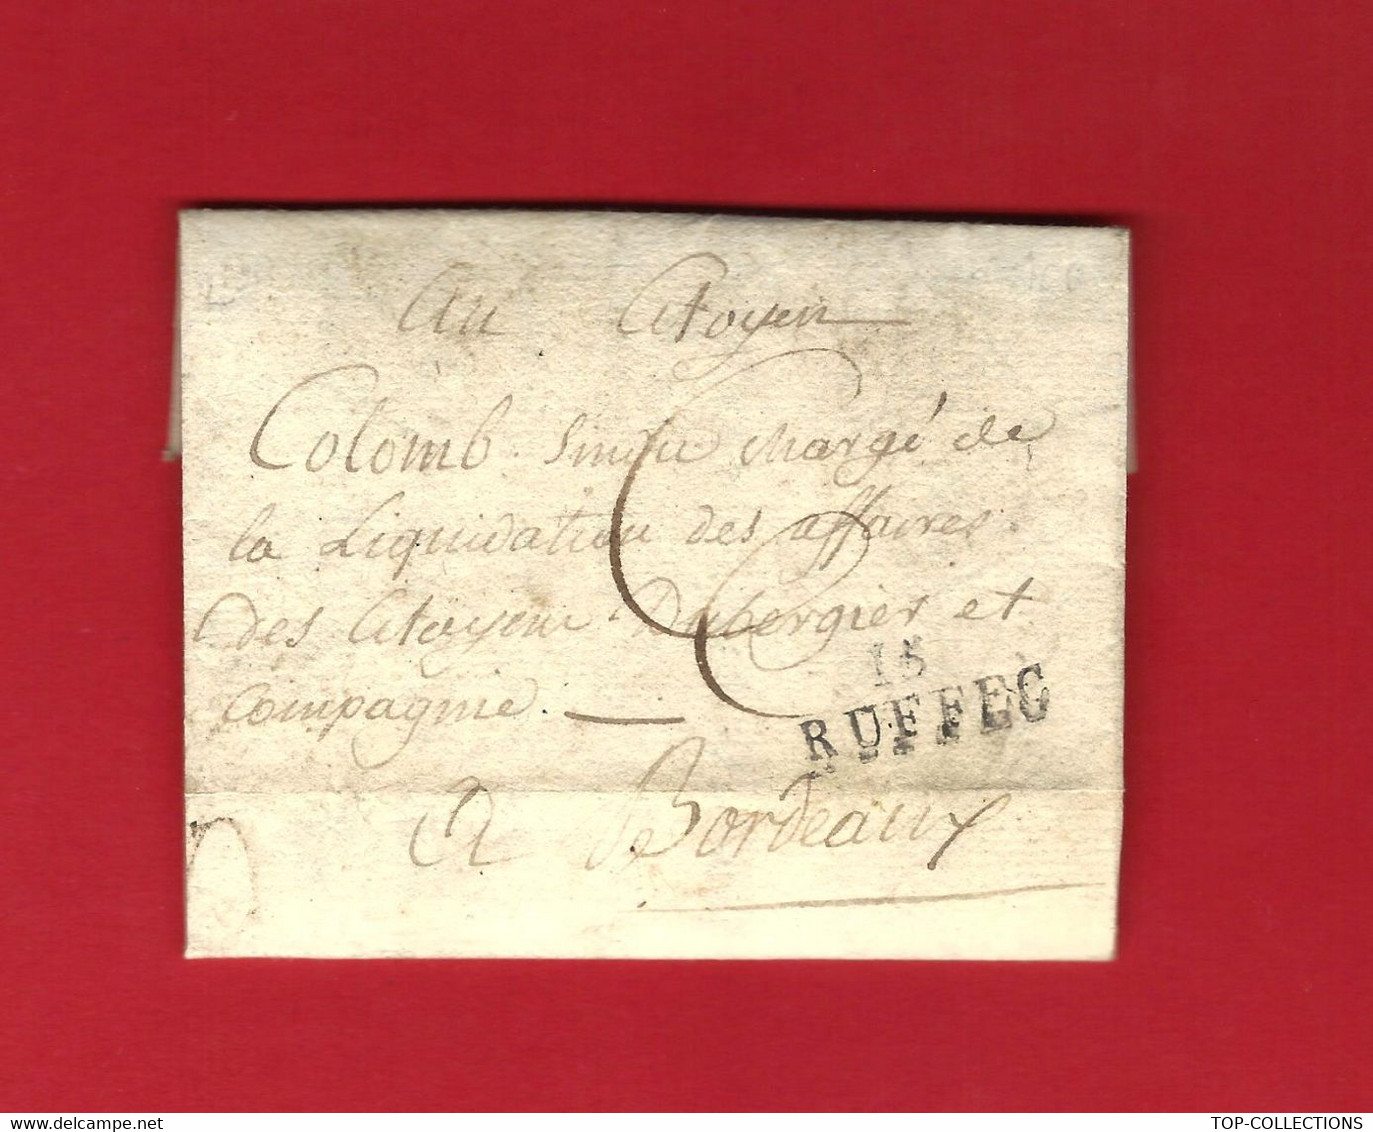 Au Citoyen
Colomb chargé de
la Liquidation des affaires
Des Citoyens Dubergier et
compagnie.
15
RUFFEC
A Bordeaux
www.delcampe.net
TOP-COLLECTIONS